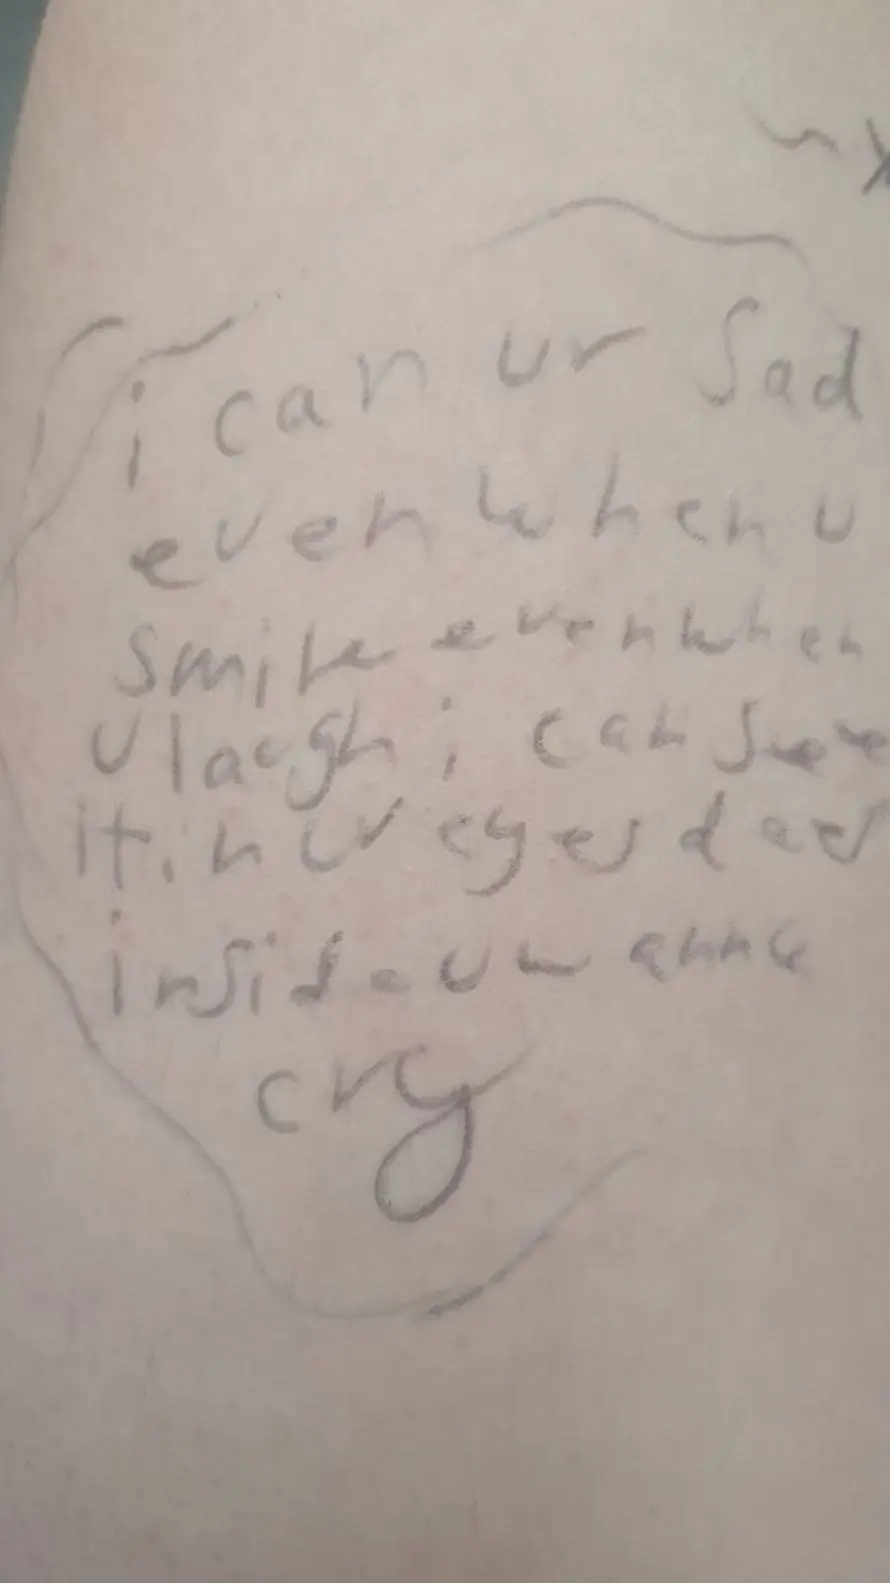 i can ur sad
even when u
smile even when
u laugh i can see
it in ur eyes deep
inside u wanna
cry